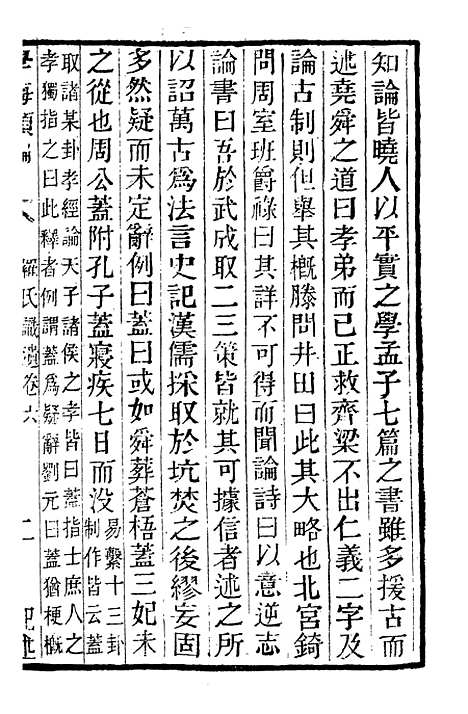 知論皆曉人以平實之學孟子七篇之書雖多援古而
述堯舜之道曰孝弟而已正救齊梁不出仁義二字及
論古制則但舉其概滕問井田曰此其大略也北宮錡
問周室班爵祿曰其詳不可得而聞論詩曰以意逆志
論書曰吾於武成取二三策皆就其可據信者述之所
以詔萬古爲法言史記漢儒採取於坑焚之後繆妄固
多然疑而未定辭例曰蓋曰或如舜葬蒼梧蓋三妃未
之從也周公蓋附孔子蓋寢疾七日而没
易繫十三卦
制作皆云蓋
取諸某卦孝經論天子諸侯之孝皆曰蓋指士庶人之
孝獨指之曰此釋者例謂蓋爲疑辭劉元曰蓋猶梗概
學海類編
羅氏識遺卷六
二
記述